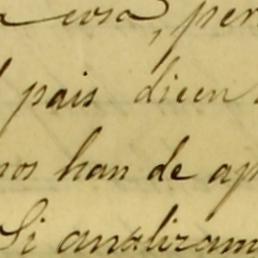 cosa, per
pais dicen
nos han de ap
Si analizam